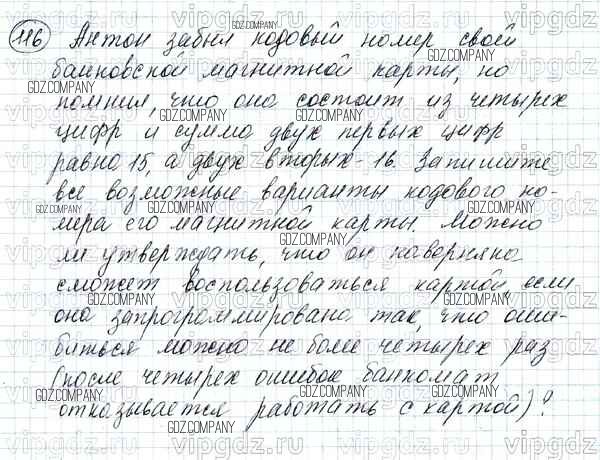 116 Антон забыл кодовый номер своей
банковской магнитной карты, но
помнил, что оно состоит из четырех
цифр и сумма двух первых цифр
равно 15, а двух вторых - 16. Запишите
все возможные варианты кодового но-
мера его магнитной карты. Можно
ли утверждать, что он наверняка
сможет воспользоваться картой, если
она запрограммирована так, что оши-
биться можно не более четырех раз
(после четырех ошибок банкомат
отказывается работать с картой)?